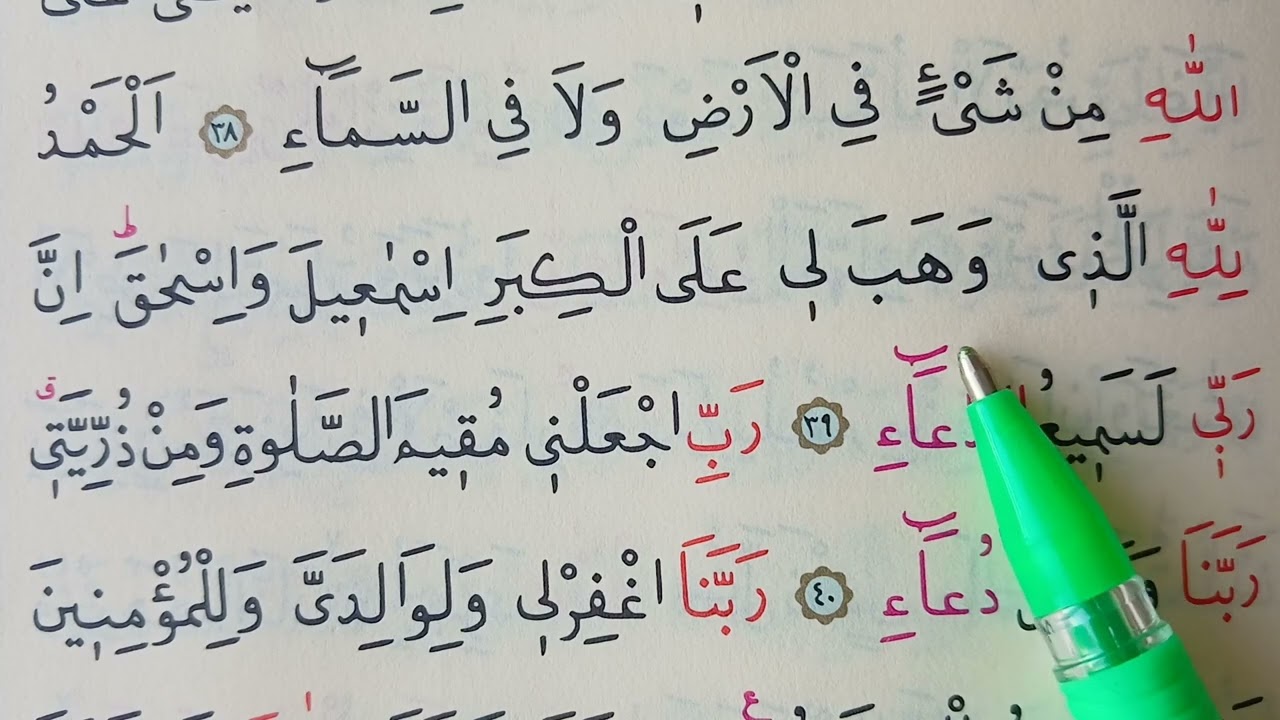 اللّٰهِ مِنْ شَىْءٍ فِي الْاَرْضِ وَلَا فِي السَّمَٓاءِ ﴿٣٨﴾ اَلْحَمْدُ
لِلّٰهِ الَّذ۪ى وَهَبَ ل۪ي عَلَى الْكِبَرِ اِسْمٰع۪يلَ وَاِسْحٰقَۜ اِنَّ
رَبّ۪ي لَسَم۪يعُ الدُّعَٓاءِ ﴿٣٩﴾ رَبِّ اجْعَلْن۪ي مُق۪يمَ الصَّلٰوةِ وَمِنْ ذُرِّيَّت۪يۗ
رَبَّنَا دُعَٓاءِ ﴿٤٠﴾ رَبَّنَا اغْفِرْل۪ي وَلِوَالِدَىَّ وَلِلْمُؤْمِن۪ينَ